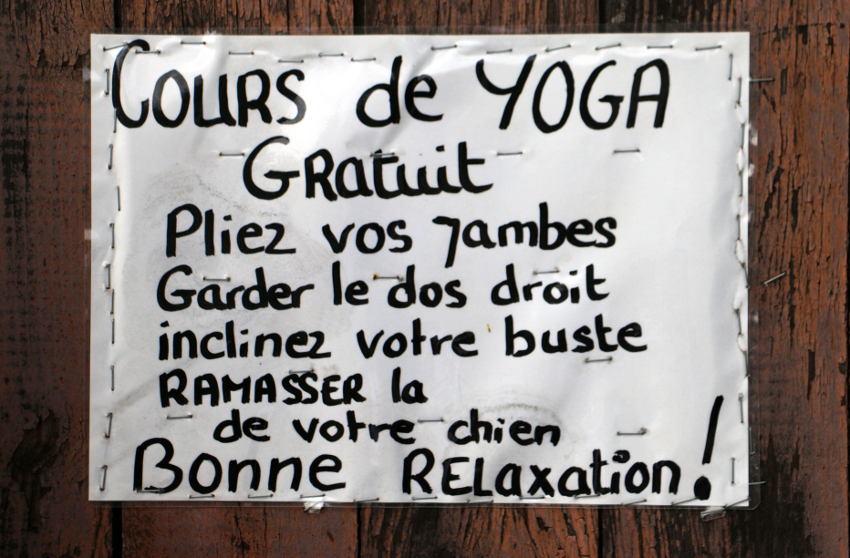 COURS de YOGA
GRatuit
Pliez vos jambes
Garder le dos droit
inclinez votre buste
RAMASSER la
de votre chien
Bonne RELaxation!